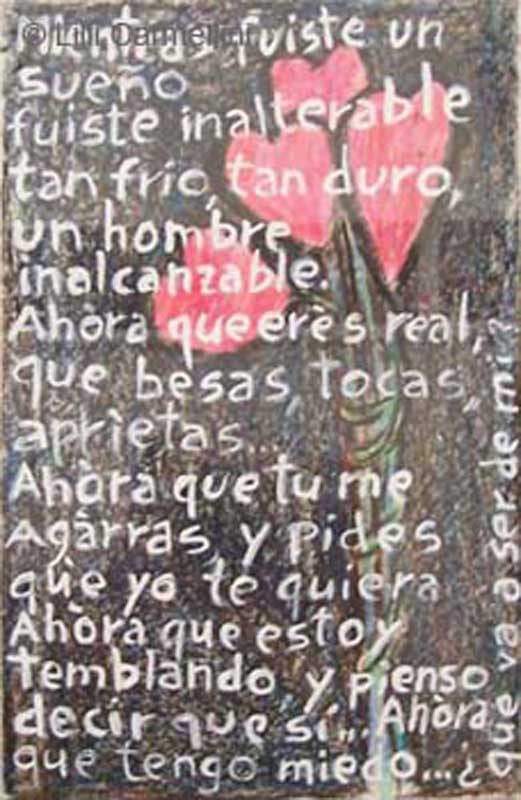 © Lilli Carmellini
Mientras fuiste un
sueño
fuiste inalterable
tan frío, tan duro,
un hombre
inalcanzable.
Ahòra que erès real,
que besas, tocas,
aprìetas...
Ahòra que tu me
Agàrras, y pides
què yo te quiera
Ahòra que estoy
temblando, y pienso
decir que sí... Ahòra
que tengo miedo...¿
que va a ser de mi?